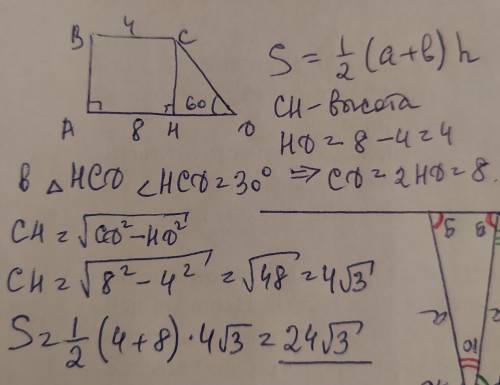 B 4 C
60
A 8 H D
S = 1/2 (a+b) h
CH - высота
HD = 8 - 4 = 4
В △HCD ∠HCD = 30° ⇒ CD = 2HD = 8.
CH = √(CD² - HD²)
CH = √(8² - 4²) = √48 = 4√3
S = 1/2 (4+8) · 4√3 = 24√3
10